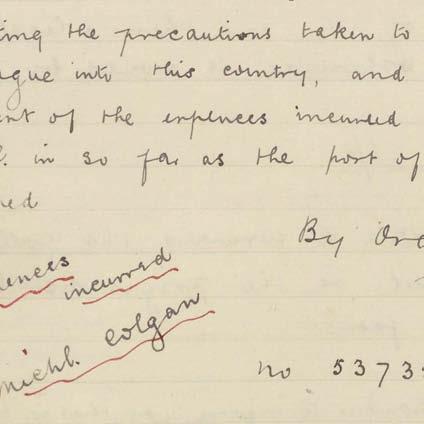 ting the precautions taken to
ague into this country, and
ent of the expences incurred
in so far as the port of
ed
By Ord
ences
incurred
Michl. Colgan
no 5373